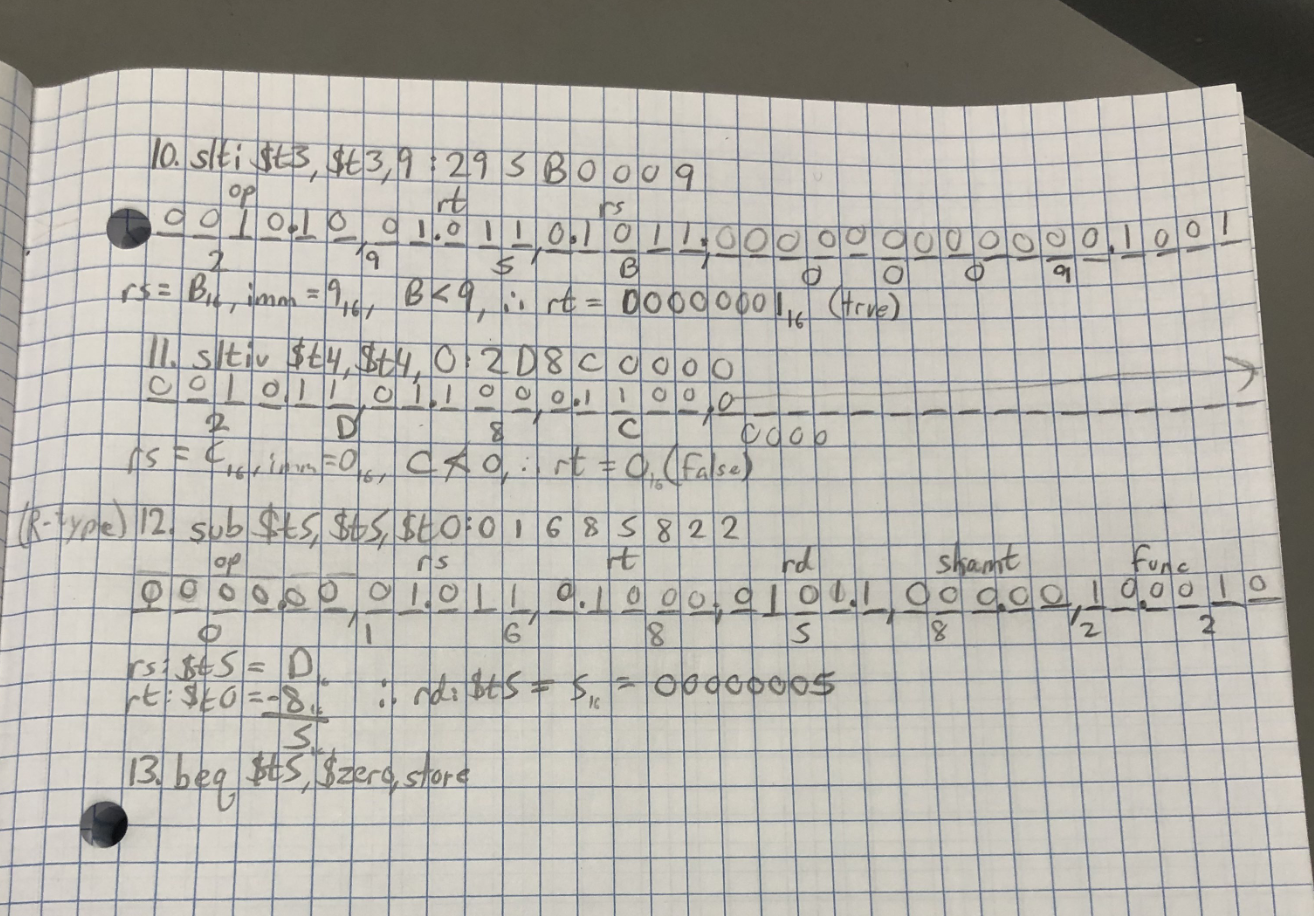 10. slti $t3, $t3, 9 : 2 9 5 B 0 0 0 9
op rt rs
0 0 1 0 . 1 0 , 0 1 . 0 1 1 , 0 . 1 0 1 1 , 0 0 0 0 0 0 0 0 0 0 0 0 . 1 0 0 1
2 9 5 B 0 0 0 9
rs = B₁₆, imm = 9₁₆, B < 9, ∴ rt = 00000001₁₆ (true)
11. sltiu $t4, $t4, 0 : 2 D 8 C 0 0 0 0
0 0 1 0 . 1 1 , 0 1 . 1 0 0 , 0 . 1 1 0 0 , 0
2 D 8 C 0 0 0 0
rs = C₁₆, imm = 0₁₆, C ≮ 0, ∴ rt = 0₁₆ (False)
(R-type) 12. sub $t5, $t5, $t0 : 0 1 6 8 5 8 2 2
op rs rt rd shamt func
0 0 0 0 . 0 0 , 0 1 . 0 1 1 , 0 . 1 0 0 0 , 0 1 0 1 . 1 , 0 0 0 . 0 0 , 1 0 . 0 0 1 0
0 1 6 8 5 8 2 2
rs: $t5 = D₁₆
rt: $t0 = -8₁₆ ∴ rd: $t5 = 5₁₆ = 00000005
5₁₆
13. beq $t5, $zero, store